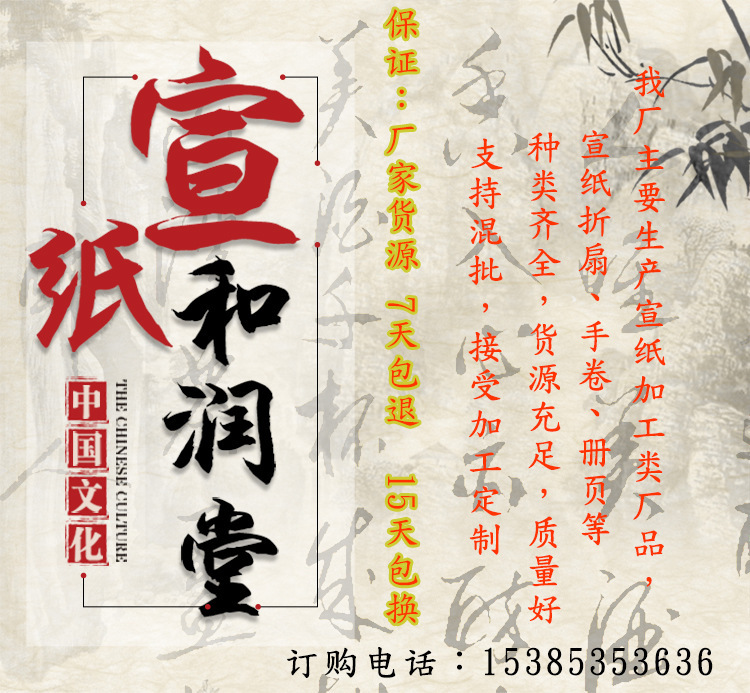 我厂主要生产宣纸加工类厂品，
宣纸折扇、手卷、册页等
种类齐全，货源充足，质量好
支持混批，接受加工定制
保证：厂家货源 7天包退 15天包换
宣和润堂
纸
THE CHINESE CULTURE
中国文化
订购电话：15385353636